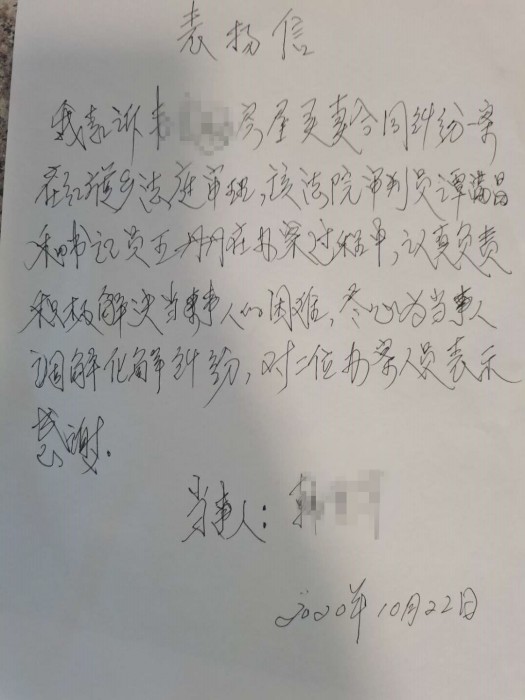 表扬信
我起诉韩 房屋买卖合同纠纷一案
在红旗乡法庭审理,该法院审判员谭满昌
和书记员王丹丹在办案过程中,认真负责
积极解决当事人的困难,尽心为当事人
调解化解纠纷,对二位办案人员表示
感谢.
当事人:韩
2020年10月22日